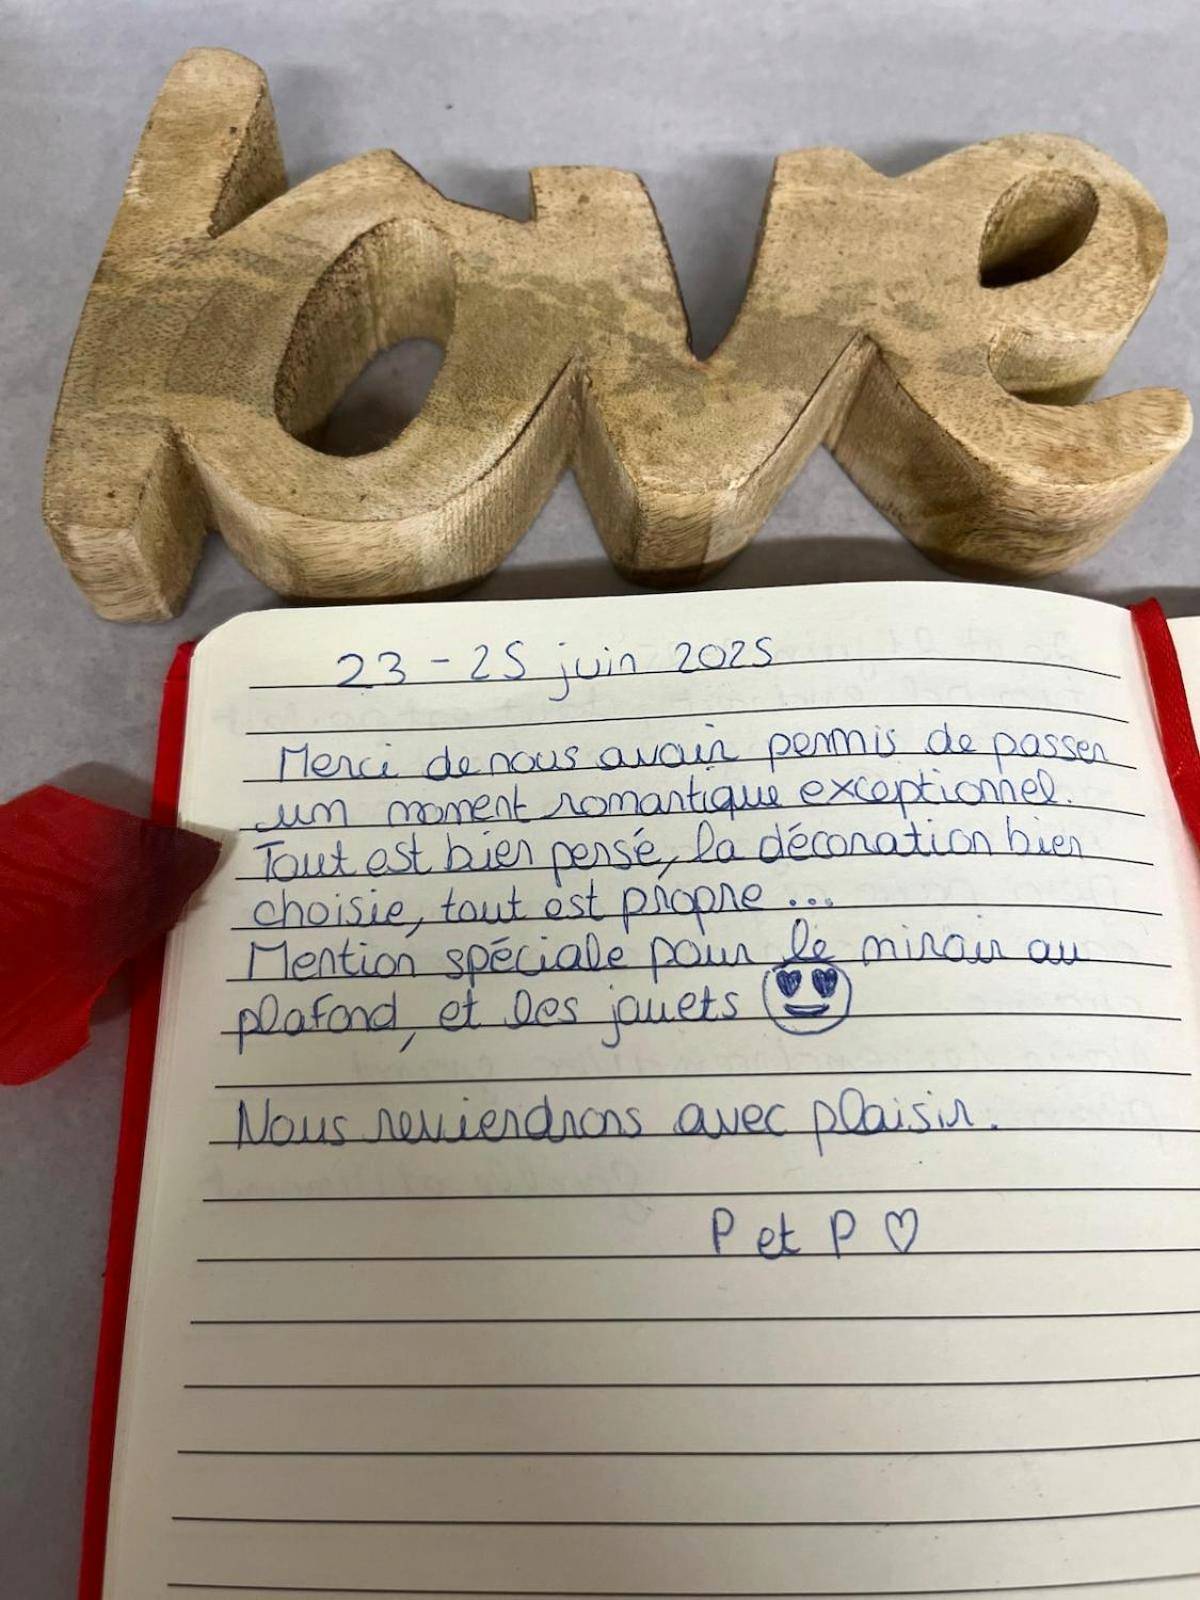 love
23 - 25 juin 2025
Merci de nous avoir permis de passer
un moment romantique exceptionnel.
Tout est bien pensé, la décoration bien
choisie, tout est propre ...
Mention spéciale pour le miroir au
plafond, et les jouets 😍
Nous reviendrons avec plaisir.
P et P ♡